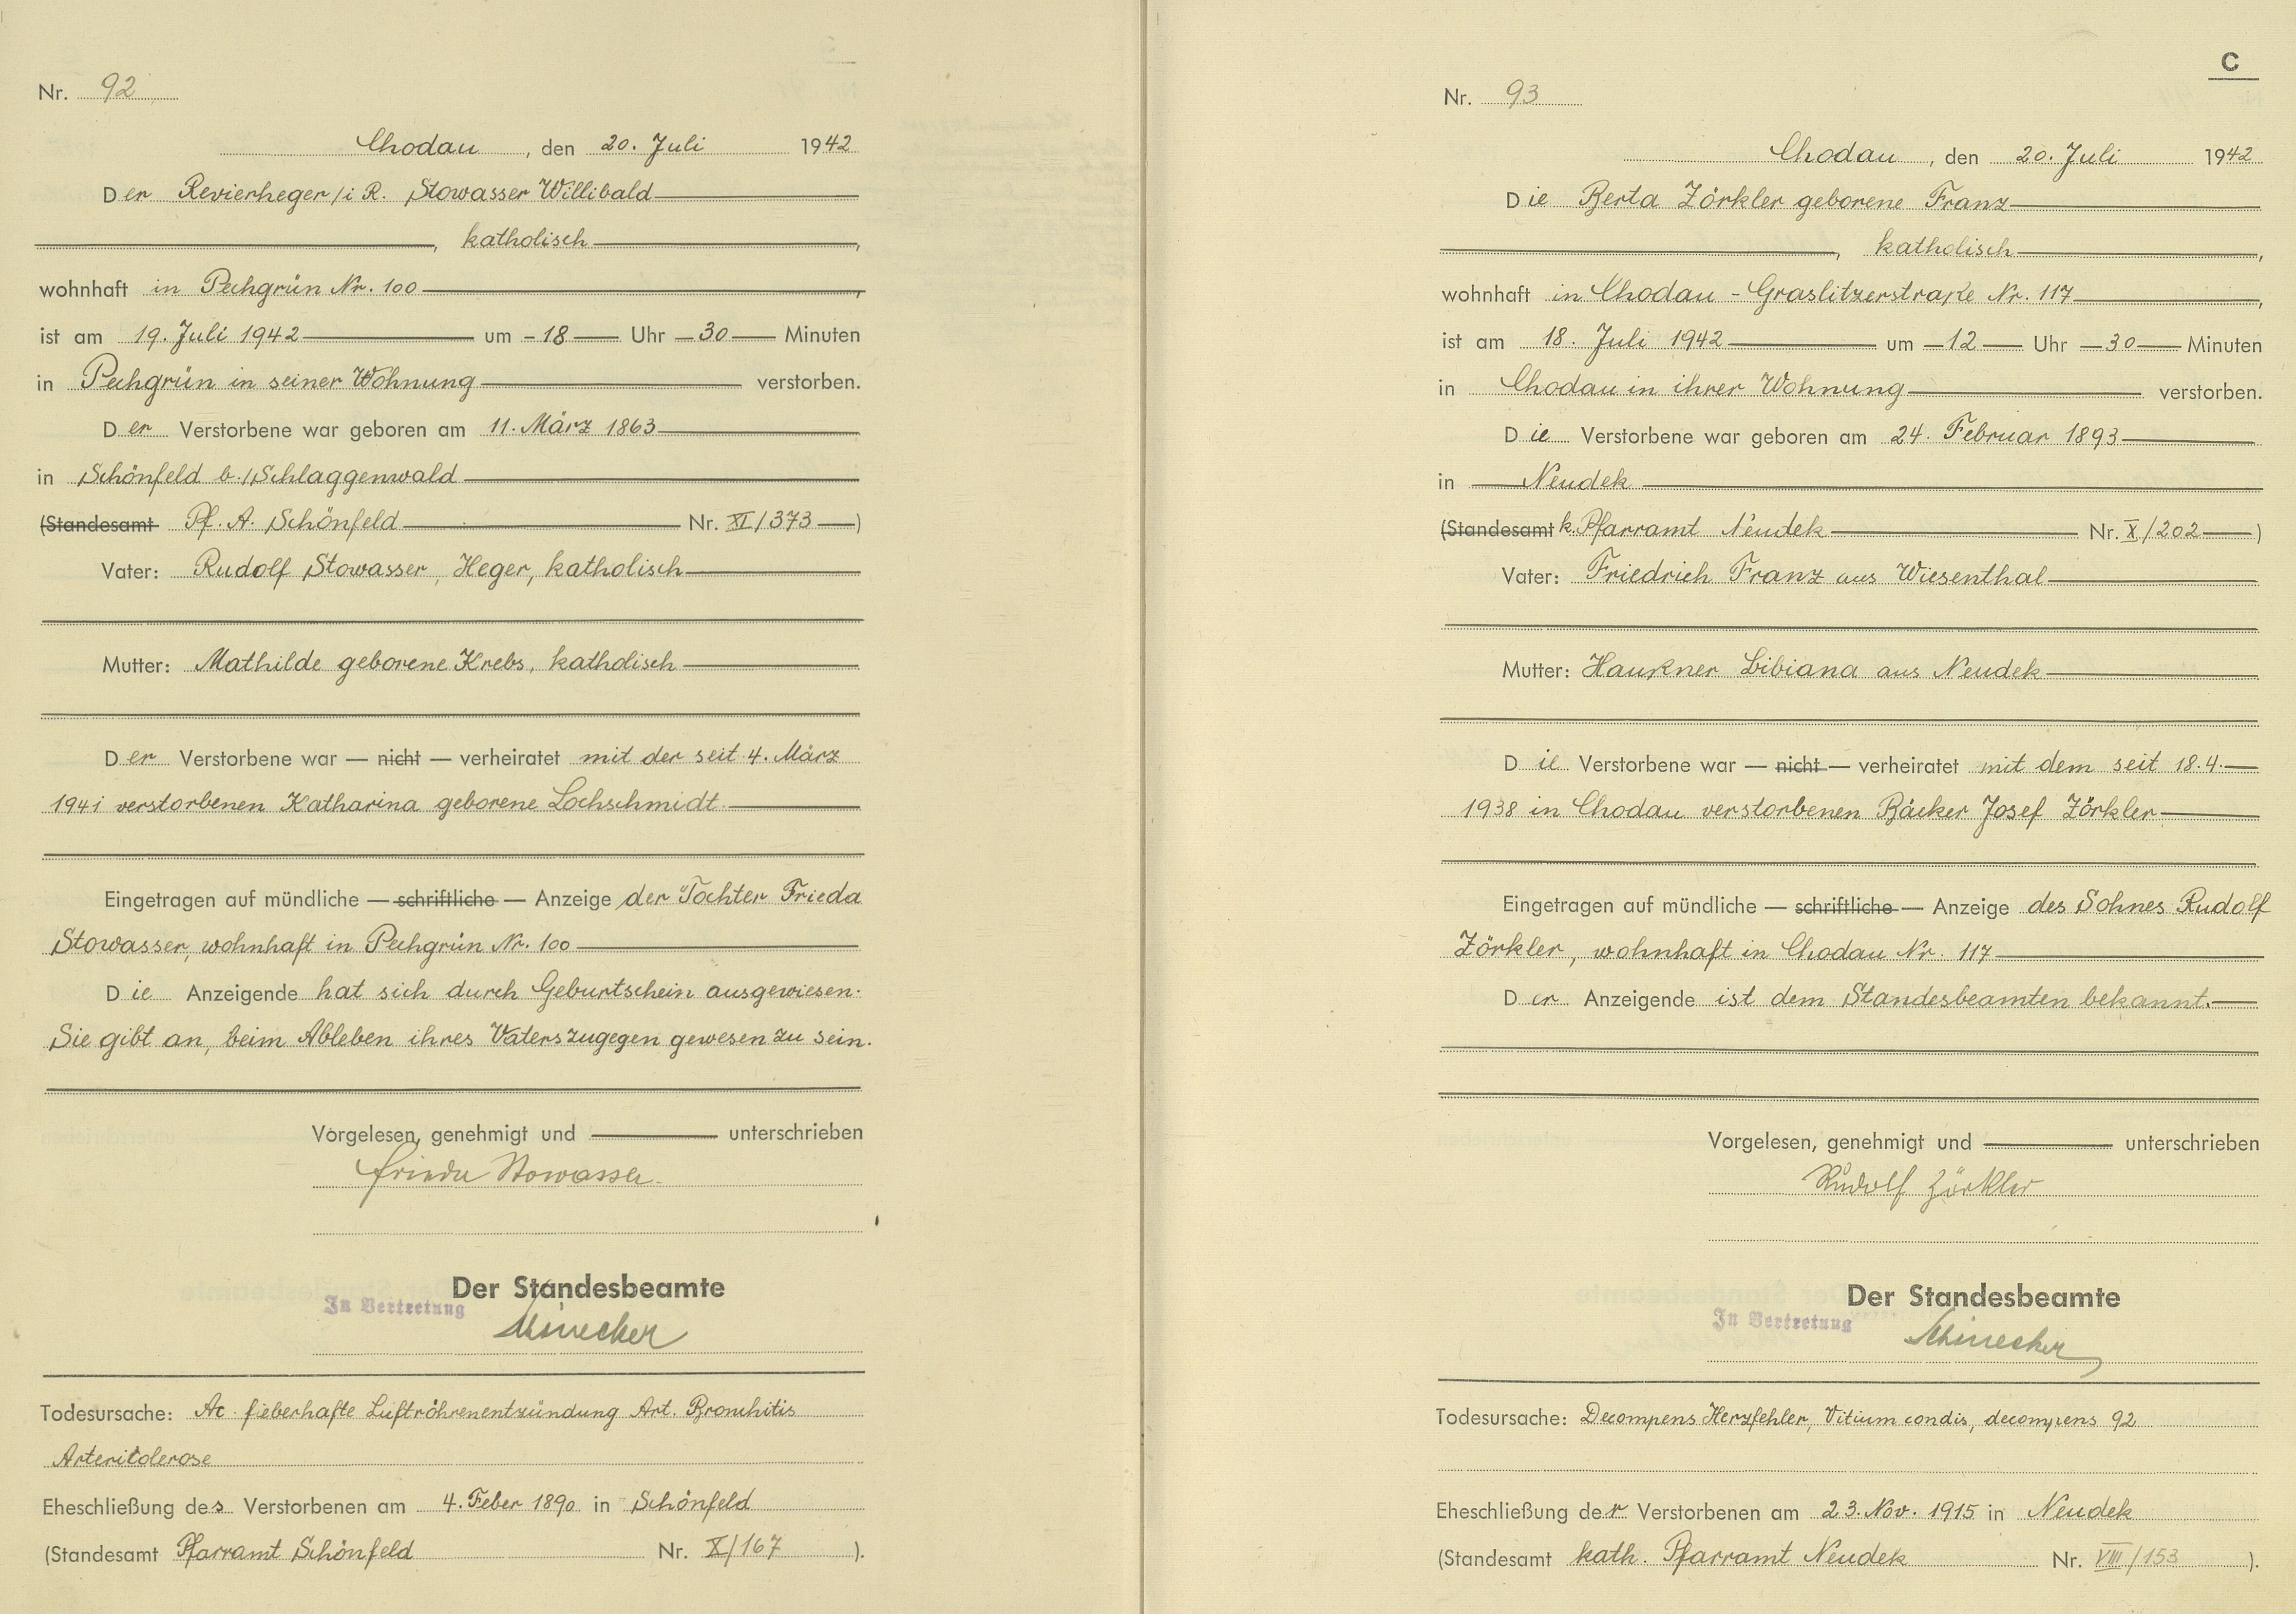 Nr. 92
Chodau, den 20. Juli 1942
Der Revierheger /i R. Stowasser Willibald
, katholisch,
wohnhaft in Pechgrün Nr. 100,
ist am 19. Juli 1942 um - 18 — Uhr — 30 — Minuten
in Pechgrün in seiner Wohnung verstorben.
Der Verstorbene war geboren am 11. März 1863
in Schönfeld b./Schlaggenwald
(Standesamt Pf. A. Schönfeld Nr. XI/373 —)
Vater: Rudolf Stowasser, Heger, katholisch
Mutter: Mathilde geborene Krebs, katholisch
Der Verstorbene war — nicht — verheiratet mit der seit 4. März
1941 verstorbenen Katharina geborene Lochschmidt.
Eingetragen auf mündliche — schriftliche — Anzeige der Tochter Frieda
Stowasser, wohnhaft in Pechgrün Nr. 100
Die Anzeigende hat sich durch Geburtschein ausgewiesen.
Sie gibt an, beim Ableben ihres Vaters zugegen gewesen zu sein.
Vorgelesen, genehmigt und — unterschrieben
Frieda Stowasser.
Der Standesbeamte
In Vertretung
Schinecker
Todesursache: Ac. fieberhafte Luftröhrenentzündung Art. Bronchitis
Arteritolerose
Eheschließung des Verstorbenen am 4. Feber 1890 in Schönfeld
(Standesamt Pfarramt Schönfeld Nr. X/167 ).
C
Nr. 93
Chodau, den 20. Juli 1942
Die Berta Zörkler geborene Franz
, katholisch,
wohnhaft in Chodau - Graslitzerstraße Nr. 117,
ist am 18. Juli 1942 um — 12 — Uhr — 30 — Minuten
in Chodau in ihrer Wohnung verstorben.
Die Verstorbene war geboren am 24. Februar 1893
in Neudek
(Standesamt k. Pfarramt Neudek Nr. X/202 —)
Vater: Friedrich Franz aus Wiesenthal
Mutter: Haukner Bibiana aus Neudek
Die Verstorbene war — nicht — verheiratet mit dem seit 18.4.—
1938 in Chodau verstorbenen Bäcker Josef Zörkler
Eingetragen auf mündliche — schriftliche — Anzeige des Sohnes Rudolf
Zörkler, wohnhaft in Chodau Nr. 117
Der Anzeigende ist dem Standesbeamten bekannt.
Vorgelesen, genehmigt und — unterschrieben
Rudolf Zörkler
Der Standesbeamte
In Vertretung
Schinecker
Todesursache: Decompens Herzfehler, Vitium condis, decompens 92
Eheschließung der Verstorbenen am 23. Nov. 1915 in Neudek
(Standesamt kath. Pfarramt Neudek Nr. VIII/153 ).